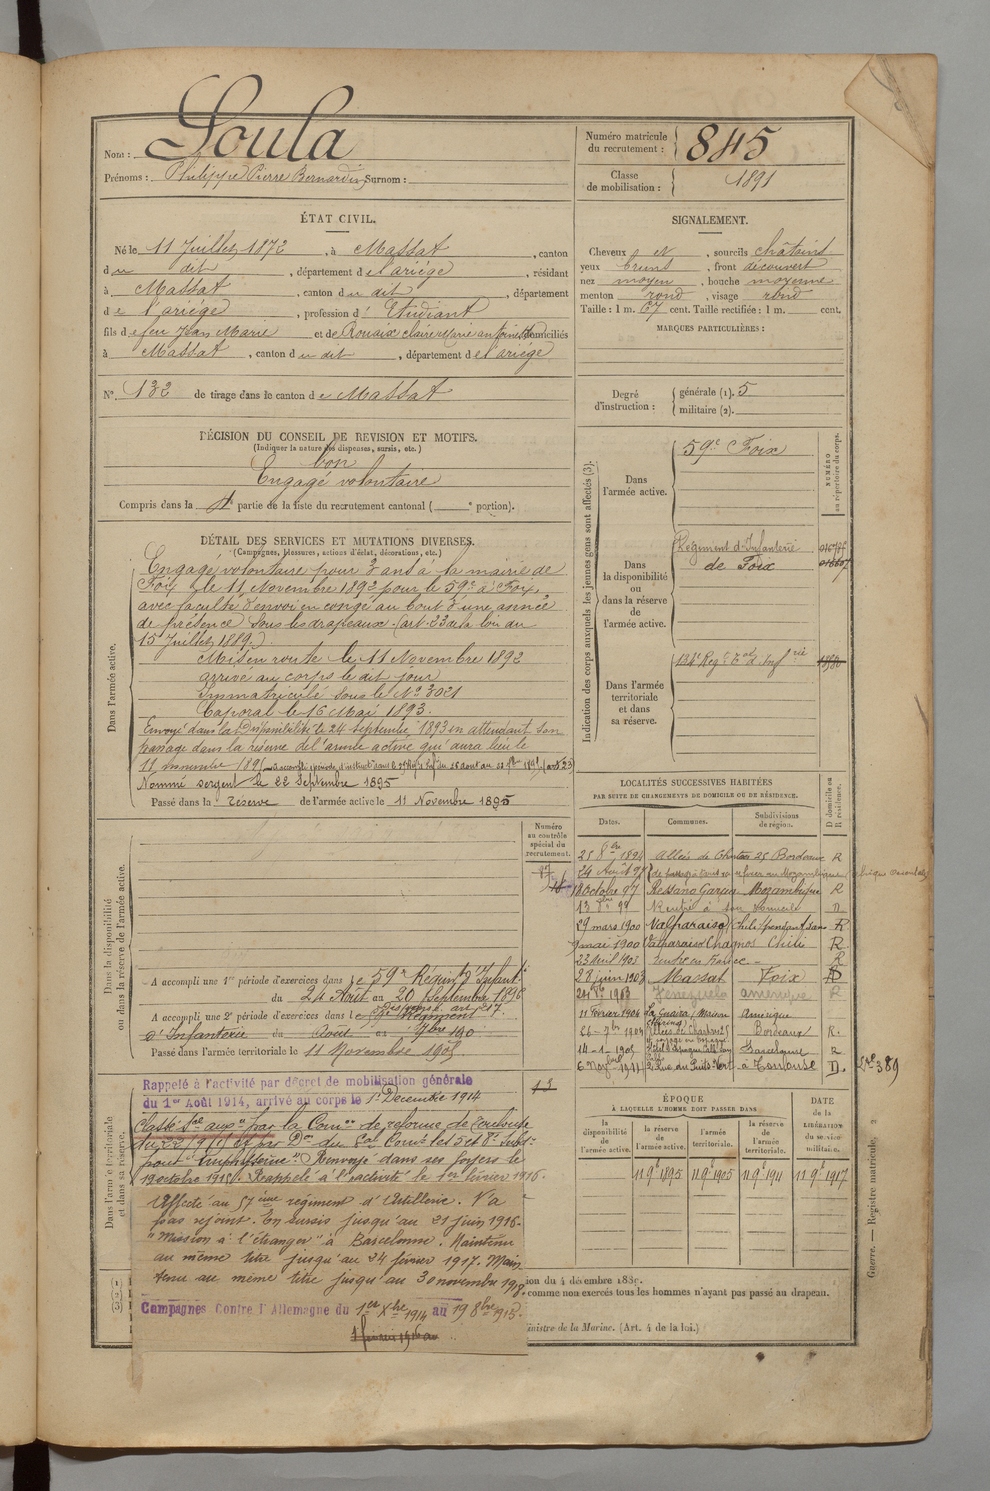 Nom : Soula
Prénoms : Philippe Pierre Bernardin Surnom :
Numéro matricule du recrutement : 845
Classe de mobilisation : 1891
ÉTAT CIVIL.
Né le 11 Juillet 1872, à Massat, canton
du dit, département de l'ariége, résidant
à Massat, canton du dit, département
de l'ariége, profession d'Etudiant
fils de feu Jean Marie et de Rouaix Claire Marie antoinette domiciliés
à Massat, canton du dit, département de l'ariége
N° 132 de tirage dans le canton de Massat
SIGNALEMENT.
Cheveux et, sourcils châtains
yeux bruns, front découvert
nez moyen, bouche moyenne
menton rond, visage rond
Taille : 1 m. 67 cent. Taille rectifiée : 1 m. cent.
MARQUES PARTICULIÈRES :
Degré d'instruction : générale (1). 5
militaire (2).
DÉCISION DU CONSEIL DE REVISION ET MOTIFS.
(Indiquer la nature des dispenses, sursis, etc.)
bon
Engagé volontaire
Compris dans la 4e partie de la liste du recrutement cantonal ( e portion).
DÉTAIL DES SERVICES ET MUTATIONS DIVERSES.
(Campagnes, blessures, actions d'éclat, décorations, etc.)
Dans l'armée active.
Engagé volontaire pour 3 ans à la mairie de
Foix le 11 Novembre 1892 pour le 59e à Foix,
avec faculté d'envoi en congé au bout d'une année
de présence sous les drapeaux. (art. 23 de la loi du
15 Juillet 1889.)
Mis en route le 11 Novembre 1892
arrivé au corps le dit jour
Immatriculé sous le No 3021
Caporal le 16 Mai 1893.
Envoyé dans la Disponibilité le 24 septembre 1893 en attendant son
passage dans la réserve de l'armée active qui aura lieu le
11 novembre 1895
Nommé sergent le 22 Septembre 1895
Passé dans la réserve de l'armée active le 11 Novembre 1895
Indication des corps auxquels les jeunes gens sont affectés (3).
NUMÉRO au répertoire du corps.
Dans l'armée active.
59e Foix
Dans la disponibilité ou dans la réserve de l'armée active.
Régiment d'Infanterie
de Foix
Dans l'armée territoriale et dans sa réserve.
134e Regt Tal d'Infrie
LOCALITÉS SUCCESSIVES HABITÉES
PAR SUITE DE CHANGEMENTS DE DOMICILE OU DE RÉSIDENCE.
Dates. Communes. Subdivisions de région. D domicile ou R résidence.
25 8bre 1894 Allées de Chartres 25 Bordeaux R
24 Août 97
14 Octobre 97 Ressano Garcia Mozambique R
Rentré à son domicile D
29 mars 1900 Valparaiso Chili R
9 mai 1900 Valparaiso Chagnos Chili R
23 Avril 1903 rentré en France R
28 juin 1903 Massat Foix D
1903 Venezuela amérique R
11 février 1904 La Guaira Amérique
26-7bre 1904 Allées de Chartres 25 Bordeaux R.
14-1-1905 Barcelone R
6 Novbre 1911 2 Rue du Puits-Vert à Toulouse D.
Dans la disponibilité ou dans la réserve de l'armée active.
Numéro au contrôle spécial du recrutement.
A accompli une 1re période d'exercices dans le 59e Régimt d'Infantie
du 24 Août au 20 Septembre 1898
A accompli une 2e période d'exercices dans le Régiment
d'Infanterie du Août au 7bre 190
Passé dans l'armée territoriale le 11 Novembre 1905
Dans l'armée territoriale et dans sa réserve.
Rappelé à l'activité par décret de mobilisation générale
du 1er Août 1914, arrivé au corps le 1er Décembre 1914
Classé Sce auxre par la Comon de réforme de Toulouse
pour "Emphysème". Renvoyé dans ses foyers le
19 octobre 1915. Rappelé à l'activité le 1er février 1916.
Affecté au 57ième régiment d'Artillerie. N'a
pas rejoint. En sursis jusqu'au 21 juin 1916.
"Mission à l'étranger" à Barcelonne. Maintenu
au même titre jusqu'au 24 février 1917. Main-
tenu au même titre jusqu'au 30 novembre 1918.
Campagnes Contre l'Allemagne du 1er Xbre 1914 au 19 8bre 1915.
ÉPOQUE
À LAQUELLE L'HOMME DOIT PASSER DANS
la disponibilité de l'armée active. la réserve de l'armée active. l'armée territoriale. la réserve de l'armée territoriale.
DATE de la LIBÉRATION du service militaire.
11 9e 1895 11 9e 1905 11 9e 1911 11 9e 1917
ion du 4 décembre 1889.
comme non exercés tous les hommes n'ayant pas passé au drapeau.
Ministre de la Marine. (Art. 4 de la loi.)
Guerre. — Registre matricule. 2